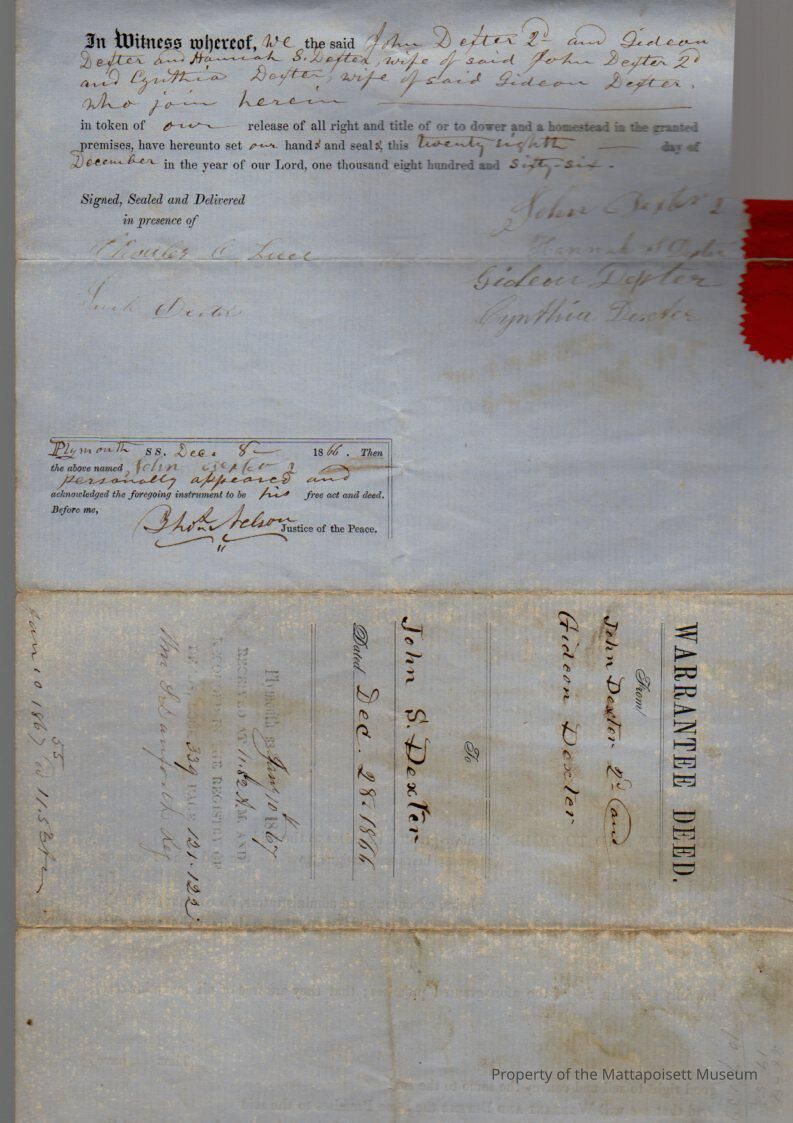 In Witness whereof, We the said John Dexter 2d and Gideon
Dexter and Hannah S. Dexter, wife of said John Dexter 2d
and Cynthia Dexter, wife of said Gideon Dexter,
who join herein
in token of our release of all right and title of or to dower and a homestead in the granted
premises, have hereunto set our hands and seals, this twenty eighth day of
December in the year of our Lord, one thousand eight hundred and sixty-six.
Signed, Sealed and Delivered
in presence of
John Dexter 2
Hannah S Dexter
Gideon Dexter
Cynthia Dexter
Luce
Dexter
Plymouth SS. Dec. 1866. Then
the above named John Dexter 2
personally appeared and
acknowledged the foregoing instrument to be his free act and deed.
Before me,
Nelson Justice of the Peace.
WARRANTEE DEED.
From
John Dexter 2d and
Gideon Dexter
To
John S. Dexter
Dated Dec. 28. 1866
Plymouth ss Jany 10th 1867
RECEIVED AT 11.52 A.M. AND
RECORDED IN THE REGISTRY OF
339 PAGE 121.122.
Wm S Danforth Reg
Jan 10 1867 @ 11.52 am
55
Property of the Mattapoisett Museum